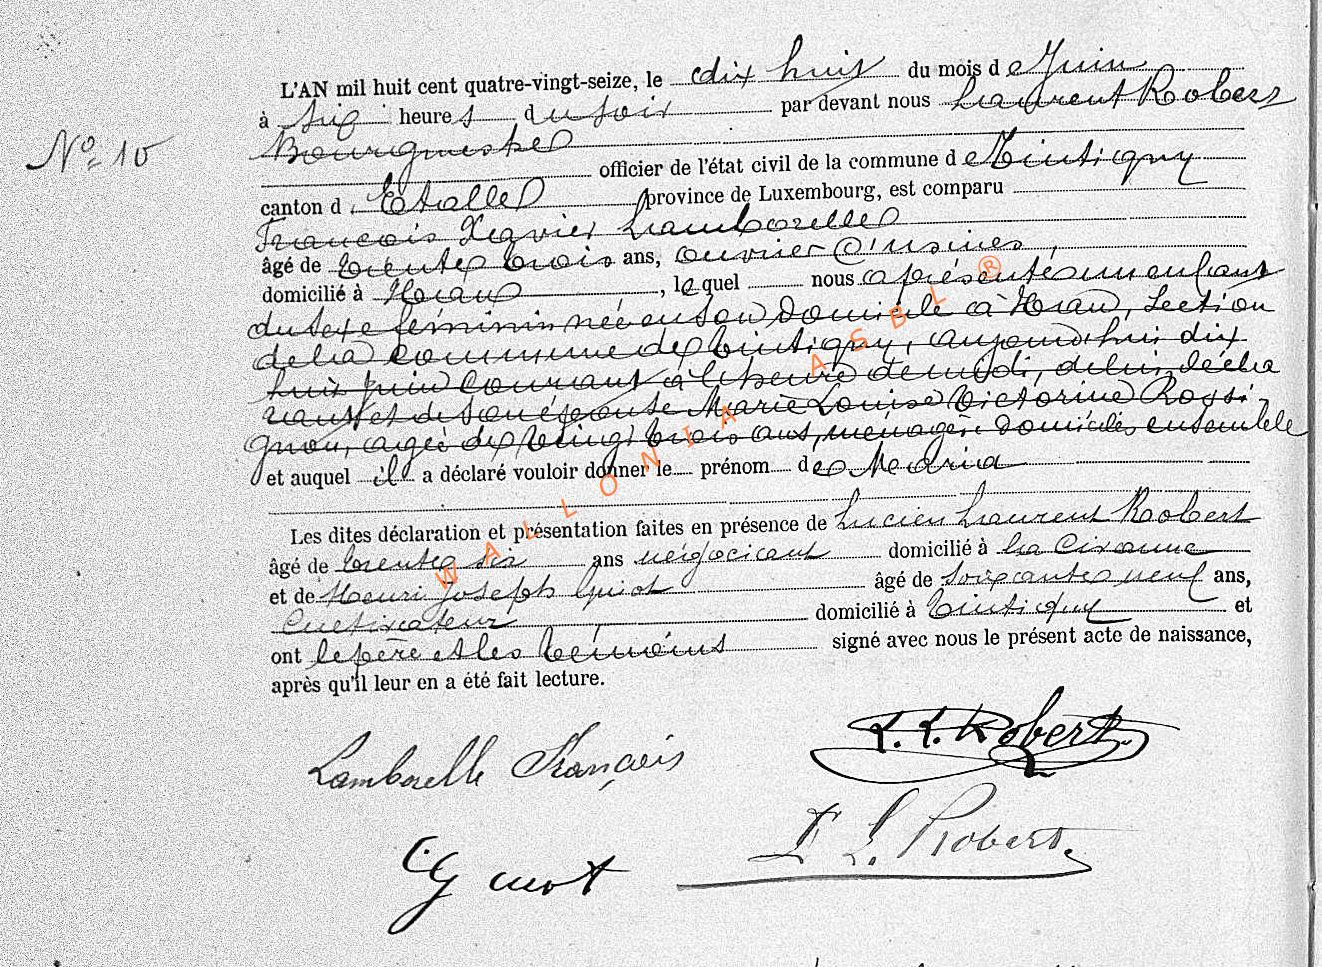 L'AN mil huit cent quatre-vingt-seize, le dix huit du mois de Juin
à six heures du soir par devant nous Laurent Robert
Nº 10
Bourgmestre
officier de l'état civil de la commune de Tintigny
canton d'Etalle province de Luxembourg, est comparu
François Xavier Lamborelle
âgé de trente trois ans, ouvrier d'usines,
domicilié à Han, lequel nous a présenté un enfant
du sexe féminin née en son domicile à Han, section
de la commune de Tintigny, aujourd'hui dix
huit juin courant à l'heure de midi, de lui décla
rant et de son épouse Marie Louise Victorine Rossi-
gnon, agée de vingt trois ans, ménagère domiciliés ensemble
et auquel il a déclaré vouloir donner le prénom de
Les dites déclaration et présentation faites en présence de Lucien Laurent Robert
âgé de trente six ans négociant domicilié à
et de Henri Joseph Guiot âgé de soixante neuf ans,
Cultivateur domicilié à Tintigny et
ont le père et les témoins signé avec nous le présent acte de naissance,
après qu'il leur en a été fait lecture.
WALLONIA ASBL ®
L. L. Robert
Lamborelle François
L. Robert
Guiot